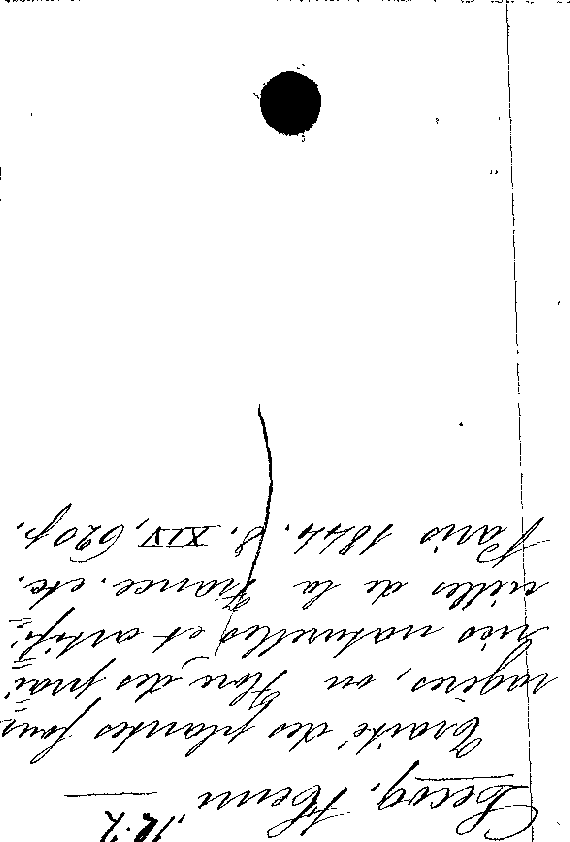 Lecoq, Henri
Traité des plantes four=
ragères, ou flore des prai=
ries naturelles et artifi=
cielles de la France. etc.
Paris 1844. 8. XIV, 620 p.